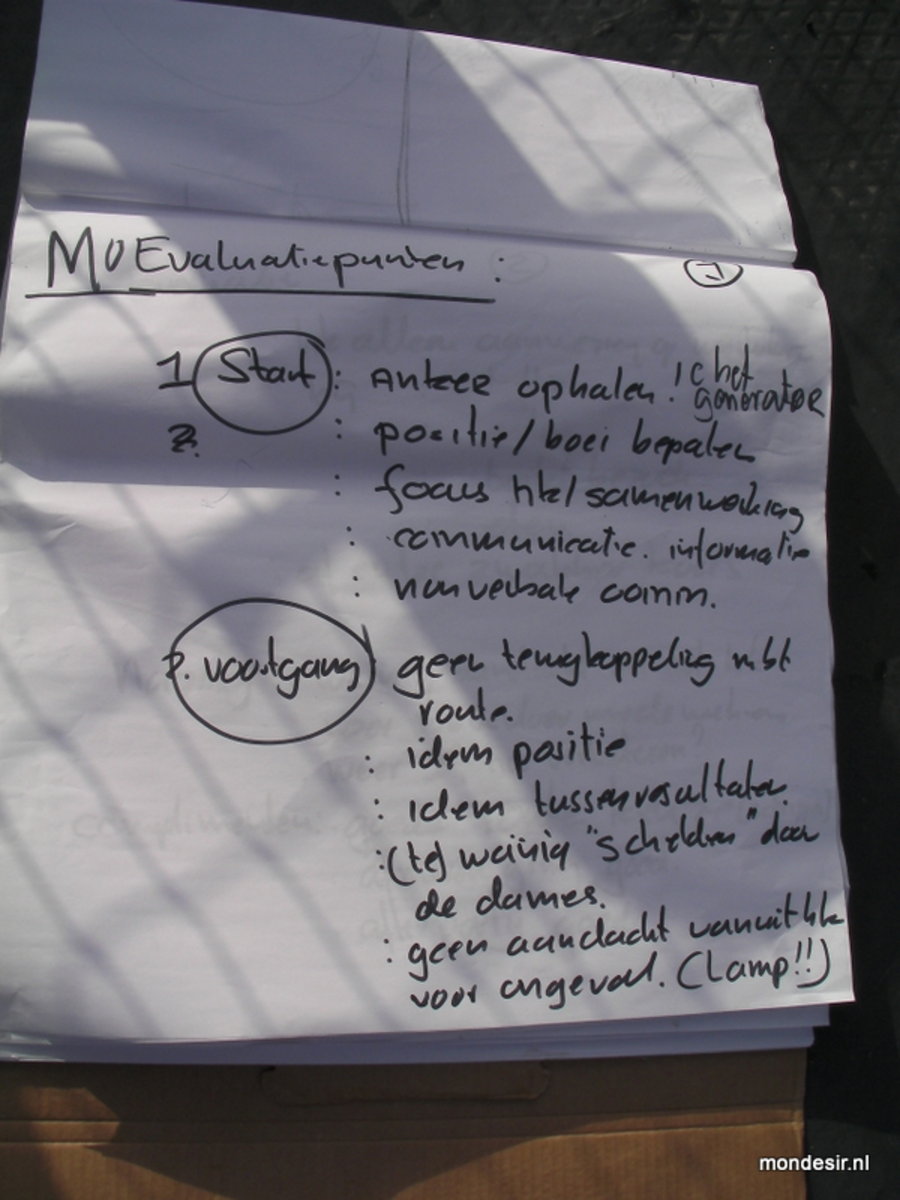 MO Evaluatiepunten :
1
1 Start : Anker ophalen ! het
generator
2. : positie/boei bepalen
: focus hk/samenwerking
: communicatie. informatie
: non verbale comm.
2. voortgang geen terugkoppeling mbt
route.
: idem positie
: idem tussenresultaten.
: (te) weinig "schelden" door
de dames.
: geen aandacht vanuit hk
voor ongeval. (Lamp!!)
mondesir.nl